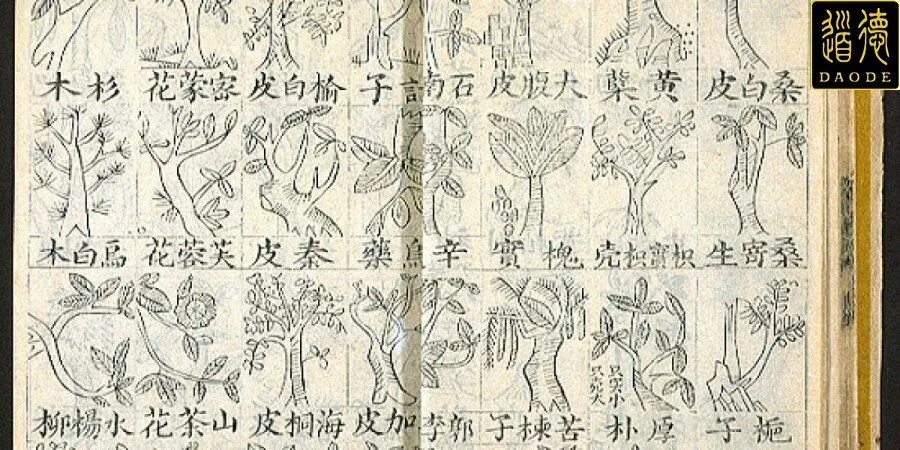 道德
DAODE
桑白皮 黃 大腹皮 石南 訶子 榆白皮 密蒙花 杉木
桑寄生 枳實枳壳 槐實 辛 烏藥 秦皮 芙蓉花 烏白木
梔子 厚朴 苦楝子 李 加皮 海桐皮 山茶花 水楊柳